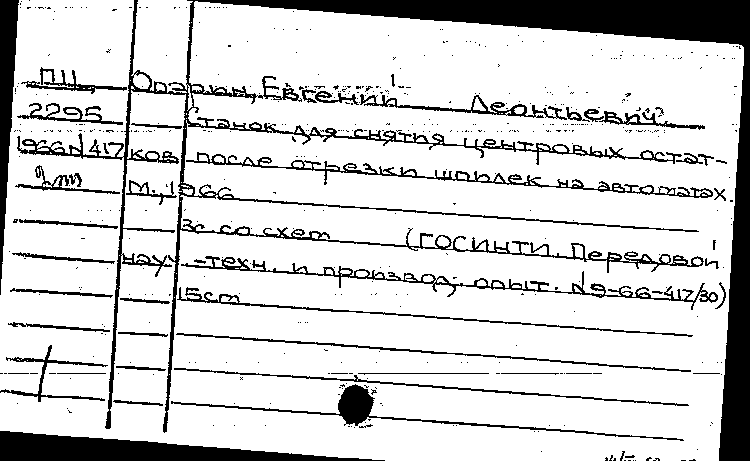 ПЦ Опарин, Евгений Леонтьевич.
2295 Станок для снятия центровых остат-
1966 N 417 ков после отрезки шпилек на автоматах.
М., 1966
3с со схем (ГОСИНТИ. Передовой
науч.-техн. и производ. опыт. N 9-66-417/30)
15cm